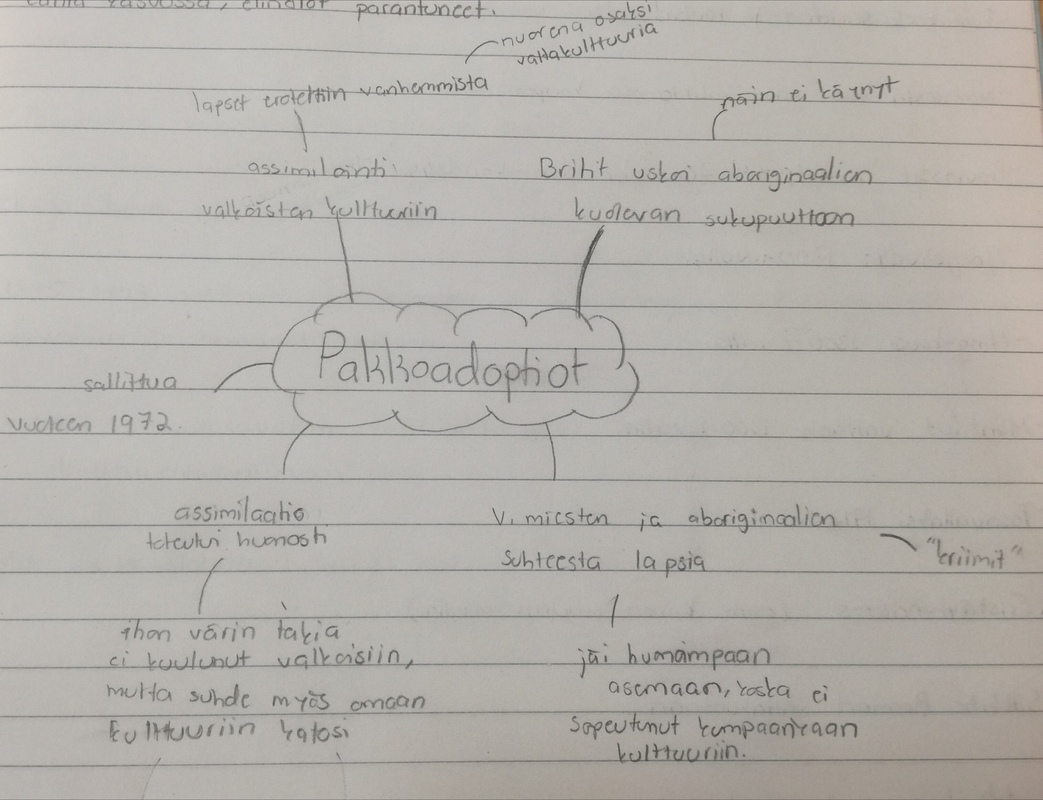 parantuneet.
nuorena osaksi
valtakulttuuria
lapset erotettiin vanhemmista
näin ei käynyt
assimilointi
valkoisten kulttuuriin
Britit uskoi aboriginaalien
kuolevan sukupuuttoon
Pakkoadoptiot
sallittua
vuoteen 1972.
assimilaatio
toteutui huonosti
V. miesten ja aboriginaalien
suhteesta lapsia
"kriimit"
ihon värin takia
ei kuulunut valkoisiin,
mutta suhde myös omaan
kulttuuriin katosi
jäi huonompaan
asemaan, koska ei
sopeutunut kumpaankaan
kulttuuriin.